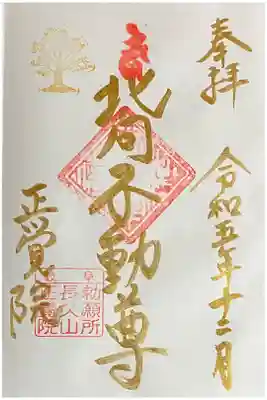 奉拝
令和五年十二月
北向不動尊
正覚院
勅願所
長久山